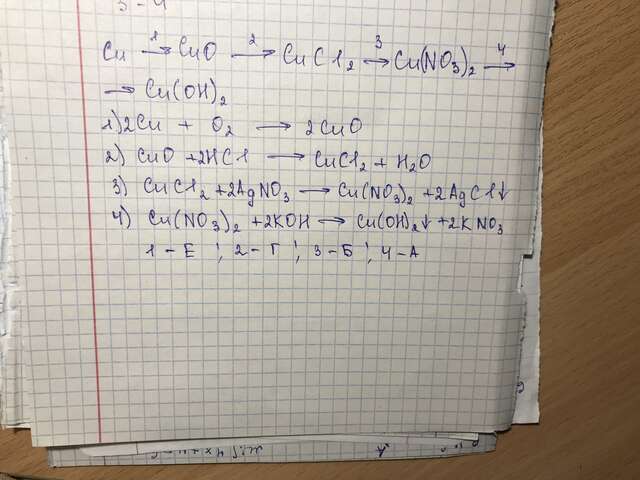 3-4
Cu →¹ CuO →² CuCl₂ →³ Cu(NO₃)₂ →⁴
→ Cu(OH)₂
1) 2Cu + O₂ → 2CuO
2) CuO + 2HCl → CuCl₂ + H₂O
3) CuCl₂ + 2AgNO₃ → Cu(NO₃)₂ + 2AgCl↓
4) Cu(NO₃)₂ + 2KOH → Cu(OH)₂↓ + 2KNO₃
1 - Е ; 2 - Г ; 3 - Б ; 4 - А